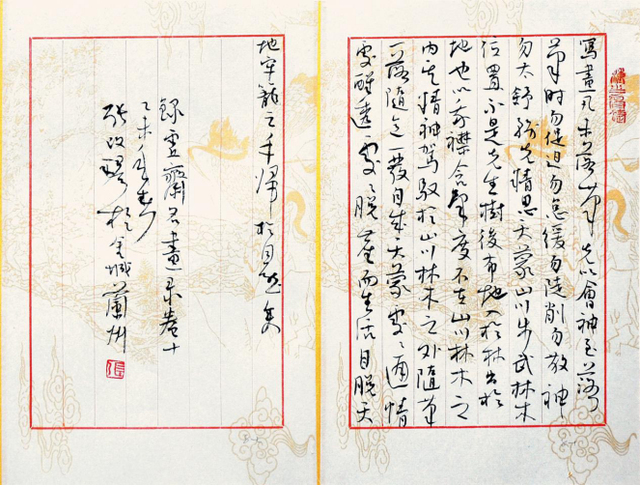 寫畫凡未落筆先以會神至落
筆時勿促迫勿怠緩勿陡削勿散神
勿太舒務先精思天蒙山川步武林木
位置不是先生樹後布地入於林出於
地也以我襟含氣度不在山川林木之
内其精神駕馭於山川林木之外隨筆
一落隨意一發自成天蒙處々通情
處醒透處々脫塵而生活自脫天
地牢籠之手歸於自然矣
錄虛齋名畫录卷十
乙未年
張改琴於金城蘭州
張